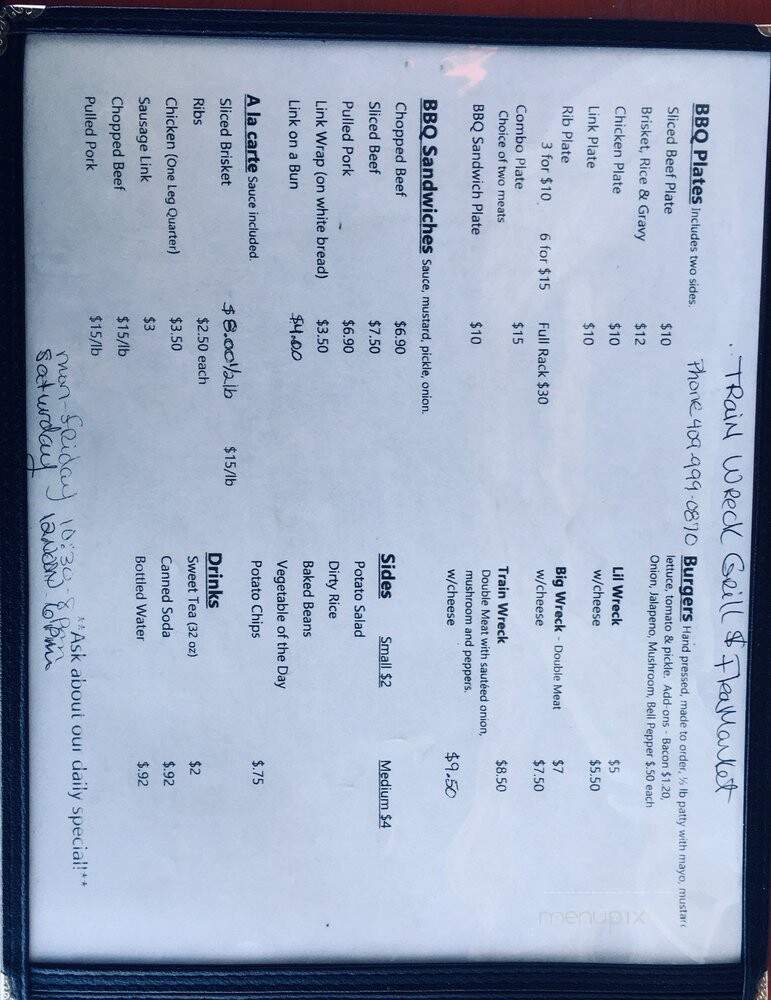 Train Wreck Grill & FleaMarket
Phone 409-999-0870
BBQ Plates Includes two sides.
Sliced Beef Plate $10
Brisket, Rice & Gravy $12
Chicken Plate $10
Link Plate $10
Rib Plate
3 for $10 6 for $15 Full Rack $30
Combo Plate $15
Choice of two meats
BBQ Sandwich Plate $10
BBQ Sandwiches Sauce, mustard, pickle, onion.
Chopped Beef $6.90
Sliced Beef $7.50
Pulled Pork $6.90
Link Wrap (on white bread) $3.50
Link on a Bun $4.00
A la carte Sauce included.
Sliced Brisket $8.00 1/2 lb $15/lb
Ribs $2.50 each
Chicken (One Leg Quarter) $3.50
Sausage Link $3
Chopped Beef $15/lb
Pulled Pork $15/lb
Burgers Hand pressed, made to order, ½ lb patty with mayo, mustard
lettuce, tomato & pickle. Add-ons - Bacon $1.20,
Onion, Jalapeno, Mushroom, Bell Pepper $.50 each
Lil Wreck $5
w/cheese $5.50
Big Wreck - Double Meat $7
w/cheese $7.50
Train Wreck $8.50
Double Meat with sautéed onion,
mushroom and peppers.
w/cheese $9.50
Sides Small $2 Medium $4
Potato Salad
Dirty Rice
Baked Beans
Vegetable of the Day
Potato Chips $.75
Drinks
Sweet Tea (32 oz) $2
Canned Soda $.92
Bottled Water $.92
**Ask about our daily special!**
mon-friday 10:30-8pm
Saturday 6pm
menupix